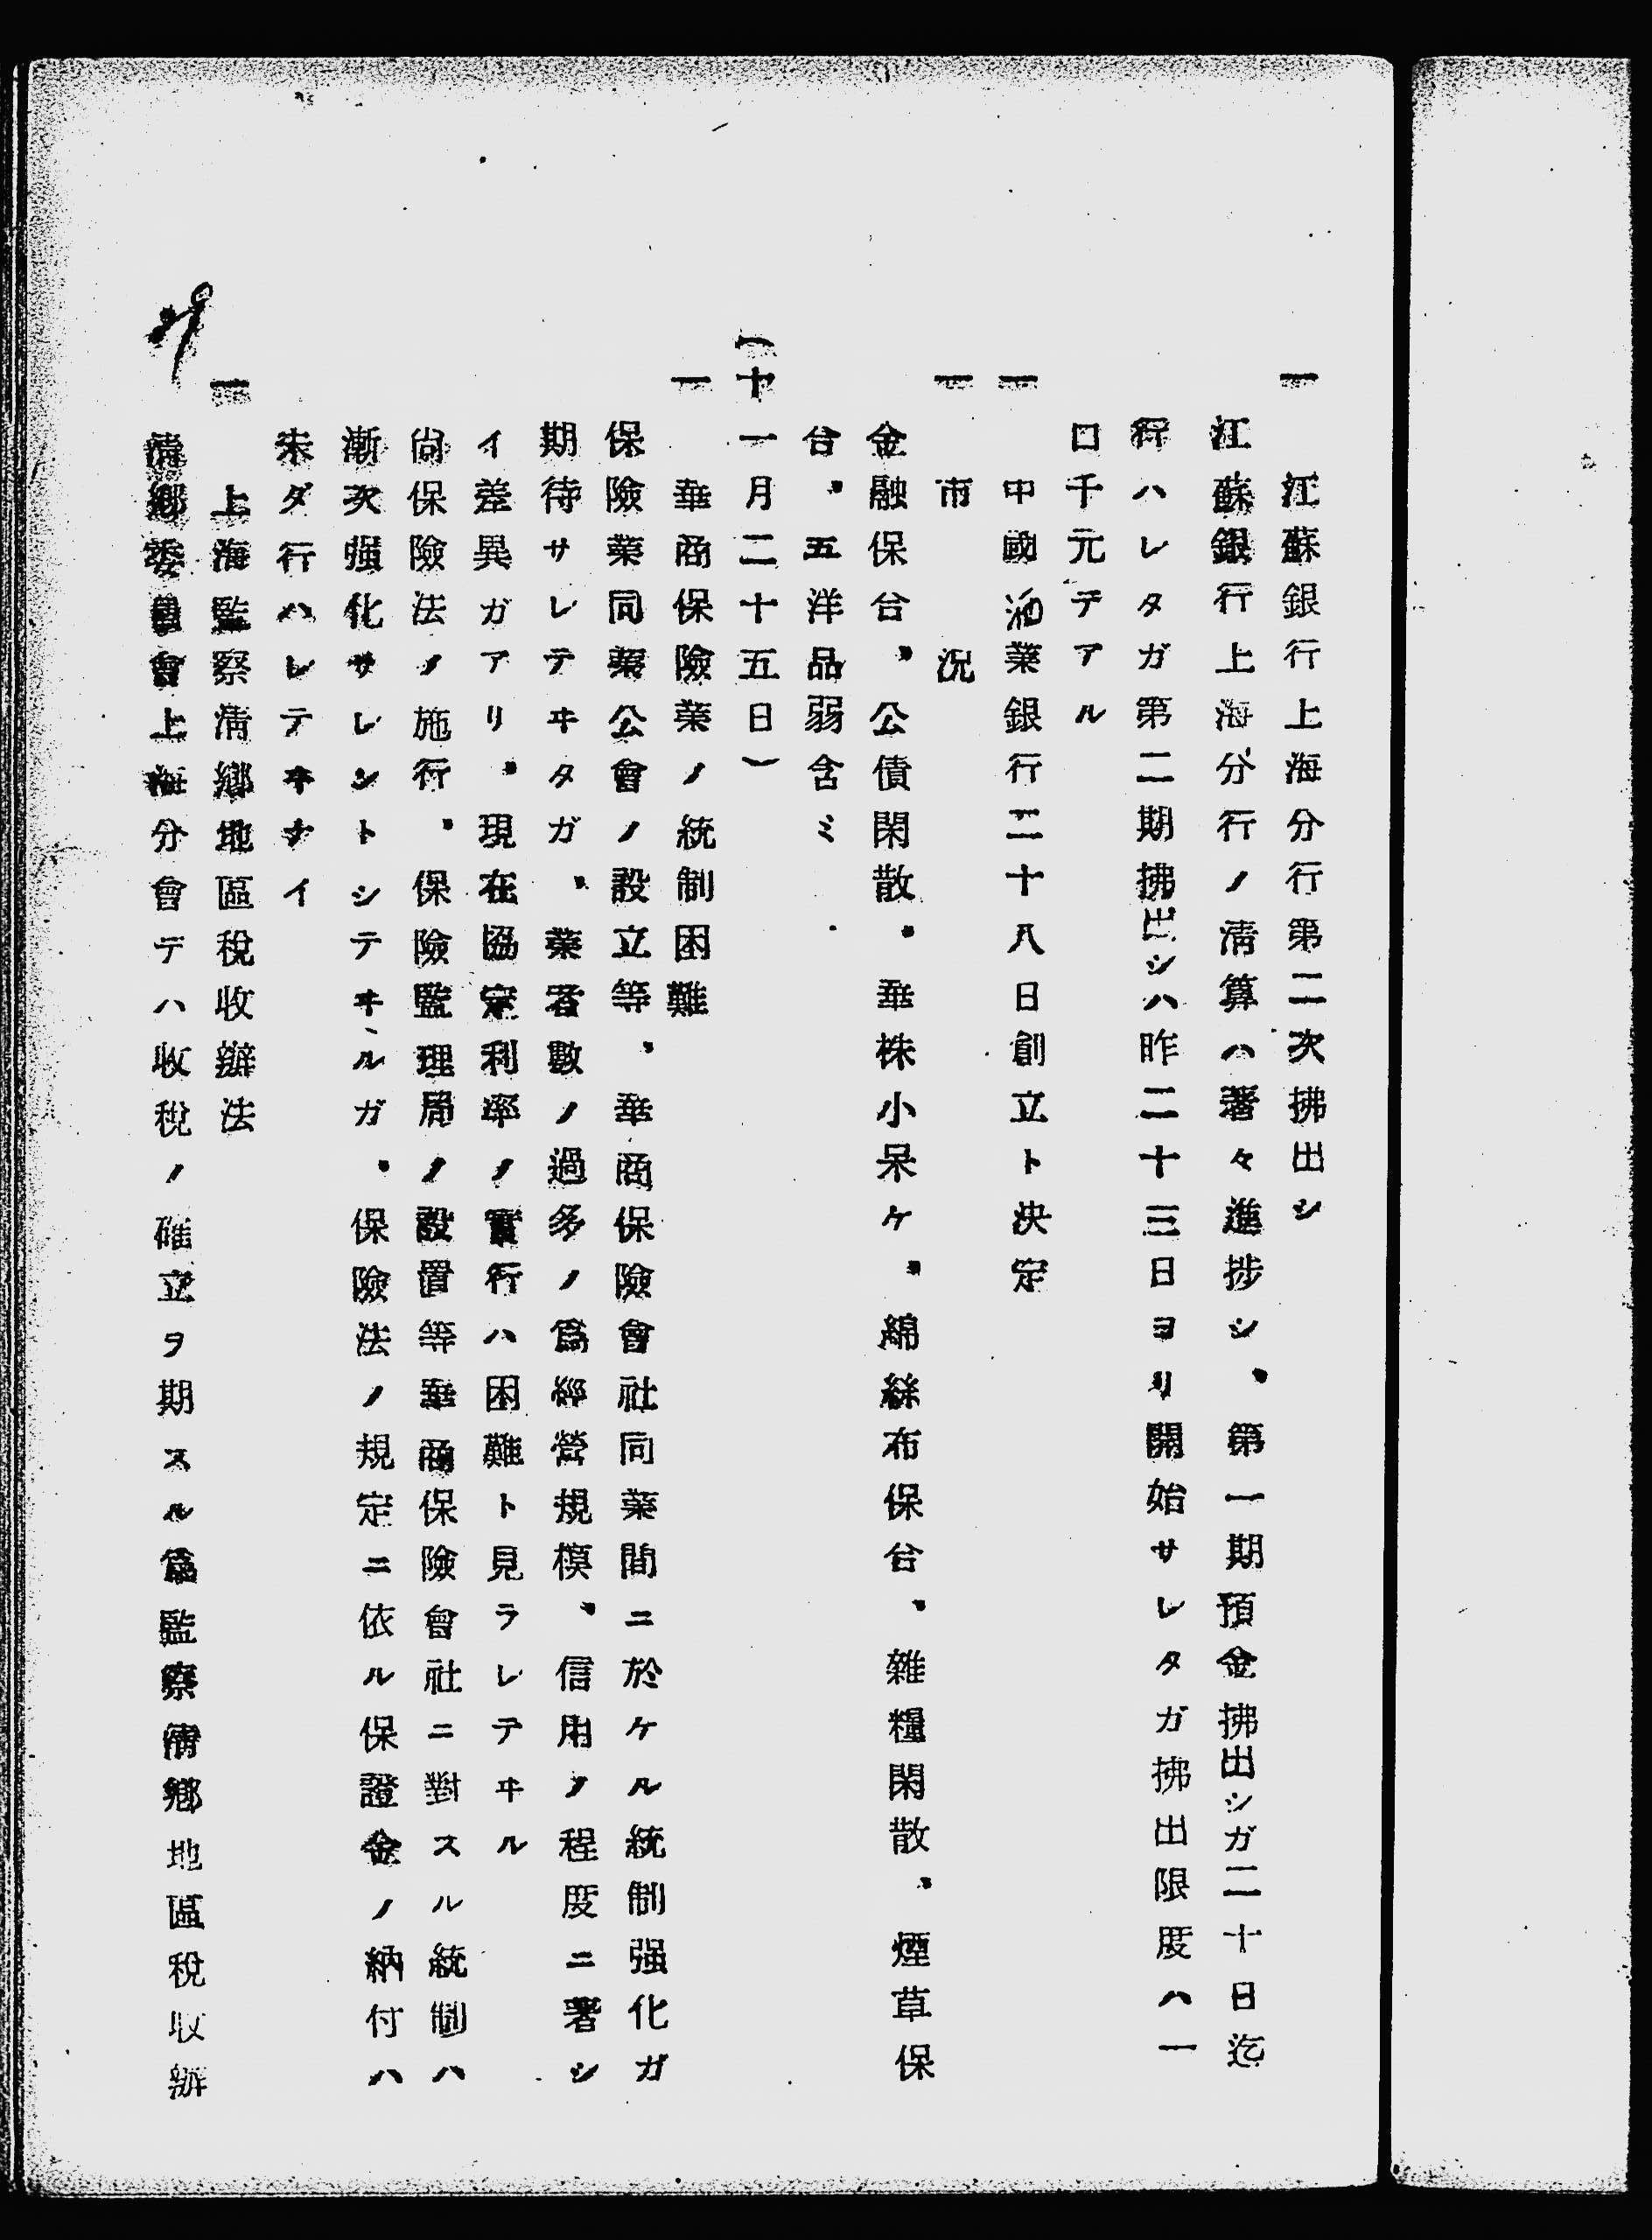 一　江蘇銀行上海分行第二次拂出シ
江蘇銀行上海分行ノ淸算ハ著々進捗シ、第一期預金拂出シガ二十日迄
行ハレタガ第二期拂出シハ昨二十三日ヨリ開始サレタガ拂出限度ハ一
口千元デアル
一　中國油業銀行二十八日創立ト決定
一　市況
金融保合、公債閑散、華株小呆ケ、綿絲布保合、雜糧閑散、煙草保
合、五洋品弱含ミ
（十一月二十五日）
一　華商保險業ノ統制困難
保險業同業公會ノ設立等、華商保險會社同業間ニ於ケル統制强化ガ
期待サレテヰタガ、業者數ノ過多ノ爲經營規模、信用ノ程度ニ著シ
イ差異ガアリ、現在協定利率ノ實行ハ困難ト見ラレテヰル
尙保險法ノ施行、保險監理局ノ設置等華商保險會社ニ對スル統制ハ
漸次强化サレントシテヰルガ、保險法ノ規定ニ依ル保證金ノ納付ハ
未ダ行ハレテヰナイ
一　上海監察淸鄕地區稅收辦法
淸鄕委員會上海分會デハ收稅ノ確立ヲ期スル爲監察淸鄕地區稅收辦